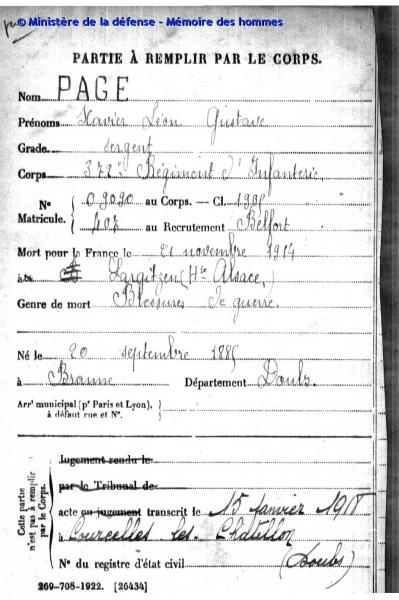 © Ministère de la défense - Mémoire des hommes
PARTIE À REMPLIR PAR LE CORPS.
Nom PAGE
Prénoms Xavier Léon Gustave
Grade sergent
Corps 372e Régiment d'Infanterie
N° Matricule. { 09090 au Corps. — Cl. 1905
407 au Recrutement Belfort
Mort pour la France le 21 novembre 1914
à Largitzen (Hte Alsace,)
Genre de mort Blessures de guerre.
Né le 20 septembre 1885
à Branne Département Doubs.
Arrt municipal (pr Paris et Lyon), à défaut rue et N°.
Cette partie n'est pas à remplir par le Corps.
Jugement rendu le
par le Tribunal de
acte ou jugement transcrit le 15 Janvier 1918
à Courcelles les Chatillon
(Doubs)
N° du registre d'état civil
269-708-1922. [26434]